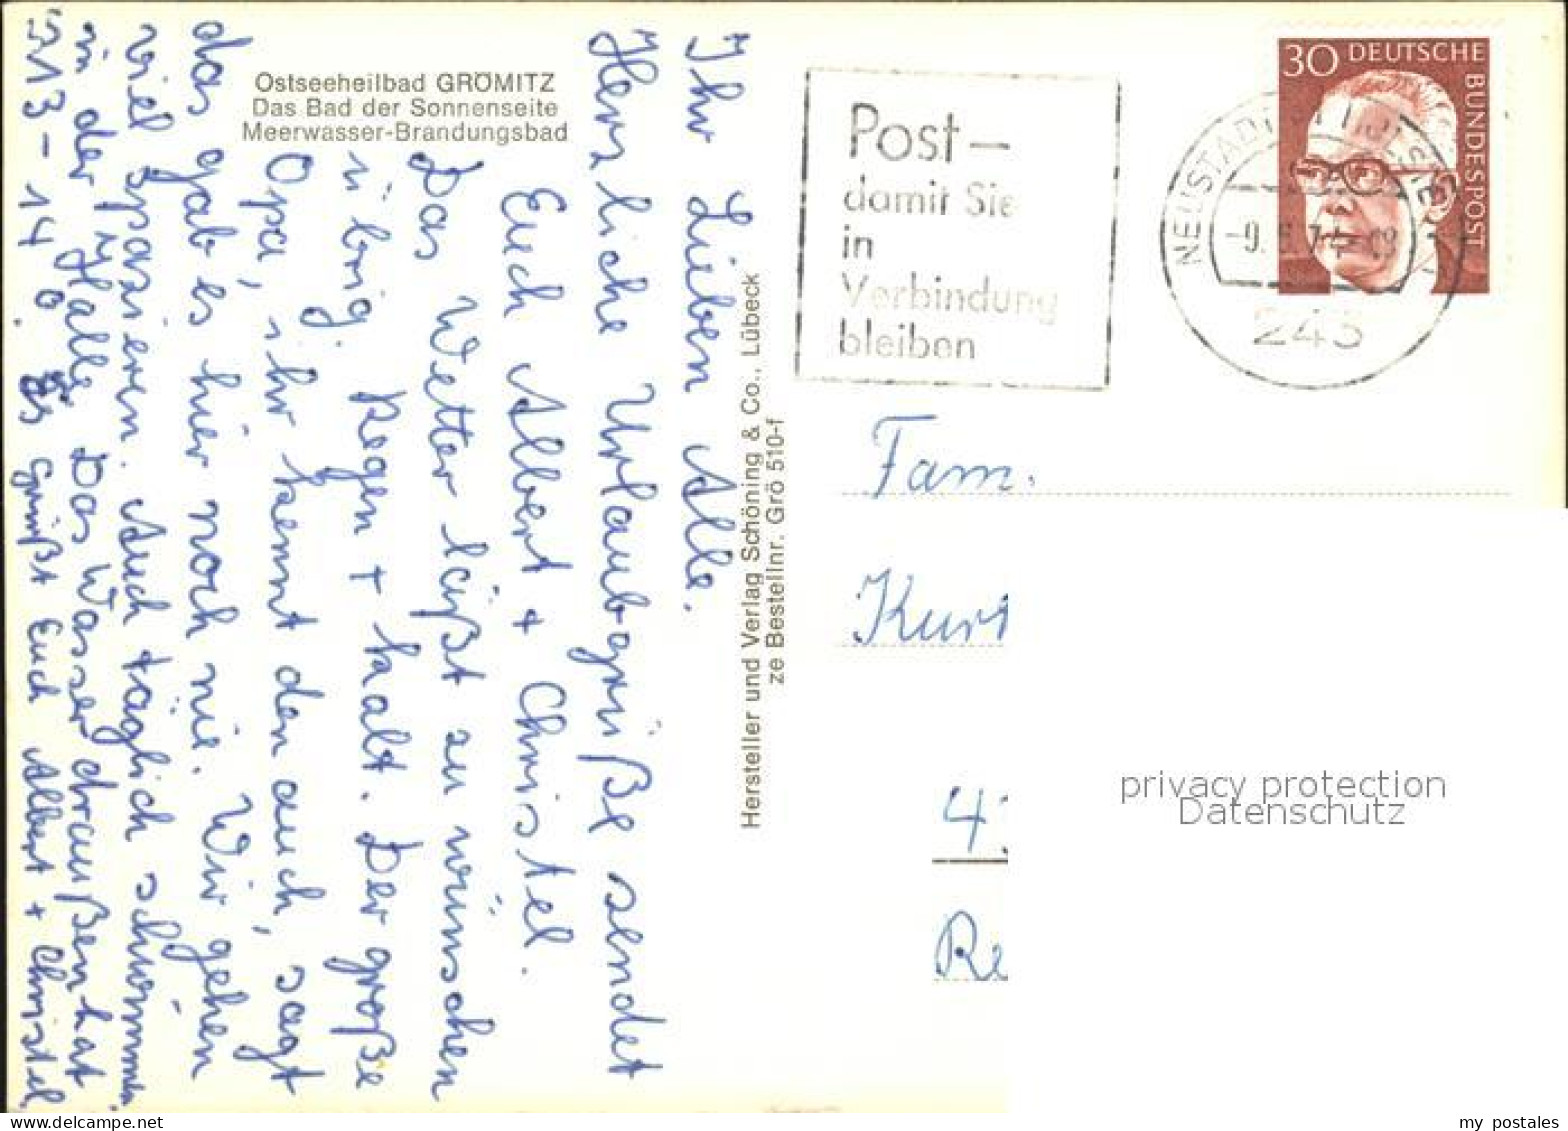 Ostseeheilbad GRÖMITZ
Das Bad der Sonnenseite
Meerwasser-Brandungsbad
Ihr Lieben Alle.
Herzliche Urlaubgrüße sendet
Euch Albert + Christel.
Das Wetter läßt zu wünschen
übrig. Regen + kalt. Der große
Opa, ihr kennt den auch, sagt
das gab es hier noch nie. Wir gehen
viel spazieren. Auch täglich schwimmen
in der Halle. Das Wasser draußen hat
13-14°. Es grüßt Euch Albert + Christel
Hersteller und Verlag Schöning & Co., Lübeck
ze Bestellnr. Grö 510-f
Post-
damit Sie
in
Verbindung
bleiben
30 DEUTSCHE
BUNDESPOST
NEUSTADT
243
Fam.
Kurt
privacy protection
Datenschutz
my postales